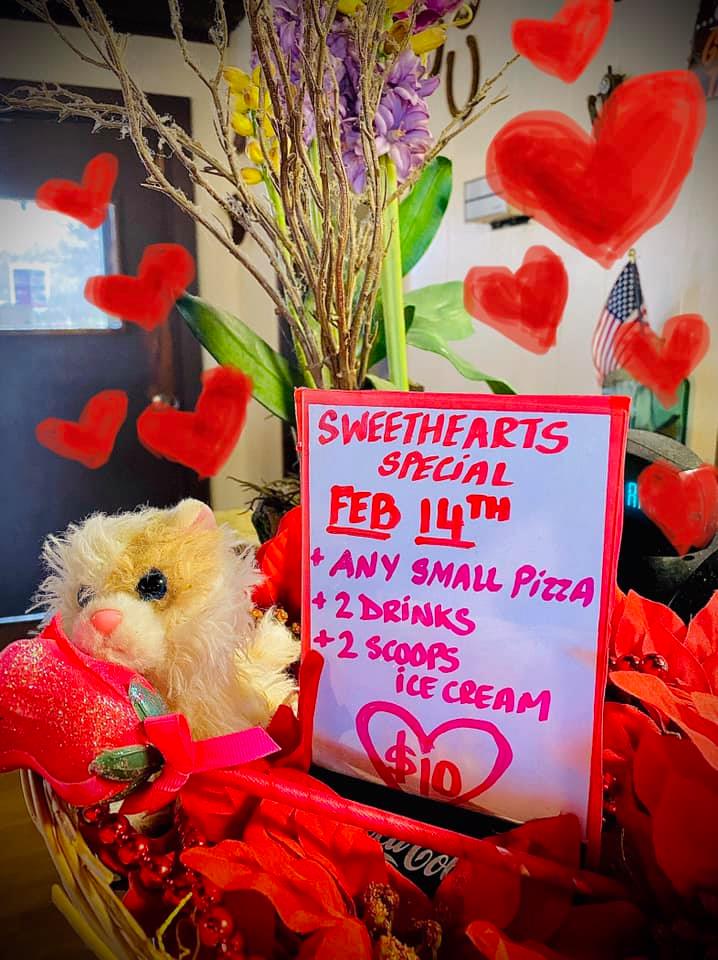 SWEETHEARTS
SPECIAL
FEB 14TH
+ ANY SMALL PIZZA
+ 2 DRINKS
+ 2 SCOOPS
ICE CREAM
$10